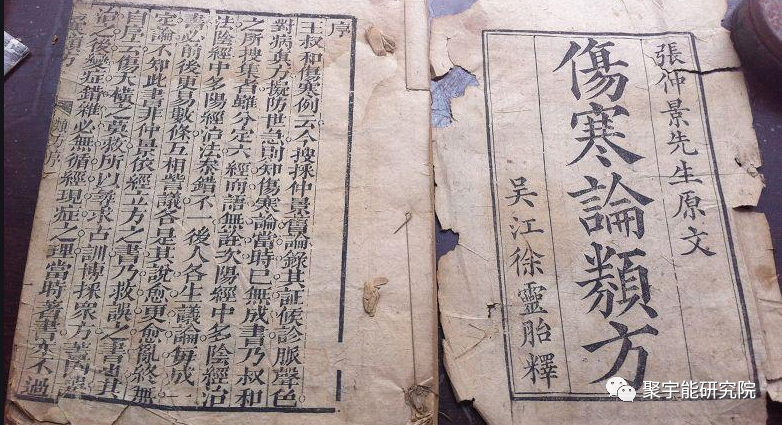 張仲景先生原文
傷寒論類方
吳江徐靈胎釋
序
王叔和傷寒例云今搜採仲景舊論錄其証候診脈聲色
對病真方擬防世急則知傷寒論當時已無成書乃叔和
之所搜集者雖分定六經而語無詮次陽經中多陰經治
法陰經中多陽經治法叅錯不一後人各生議論每成一
書必前後更易數條互相訾議各是其說愈更愈亂終無
定論不知此書非仲景依經立方之書乃救誤之書其
自序云傷夭橫之莫救所以尋求古訓博採眾方葢因誤
治之後變症錯雜必無循經現症之理當時著書亦不過
類方 類方序
聚宇能研究院